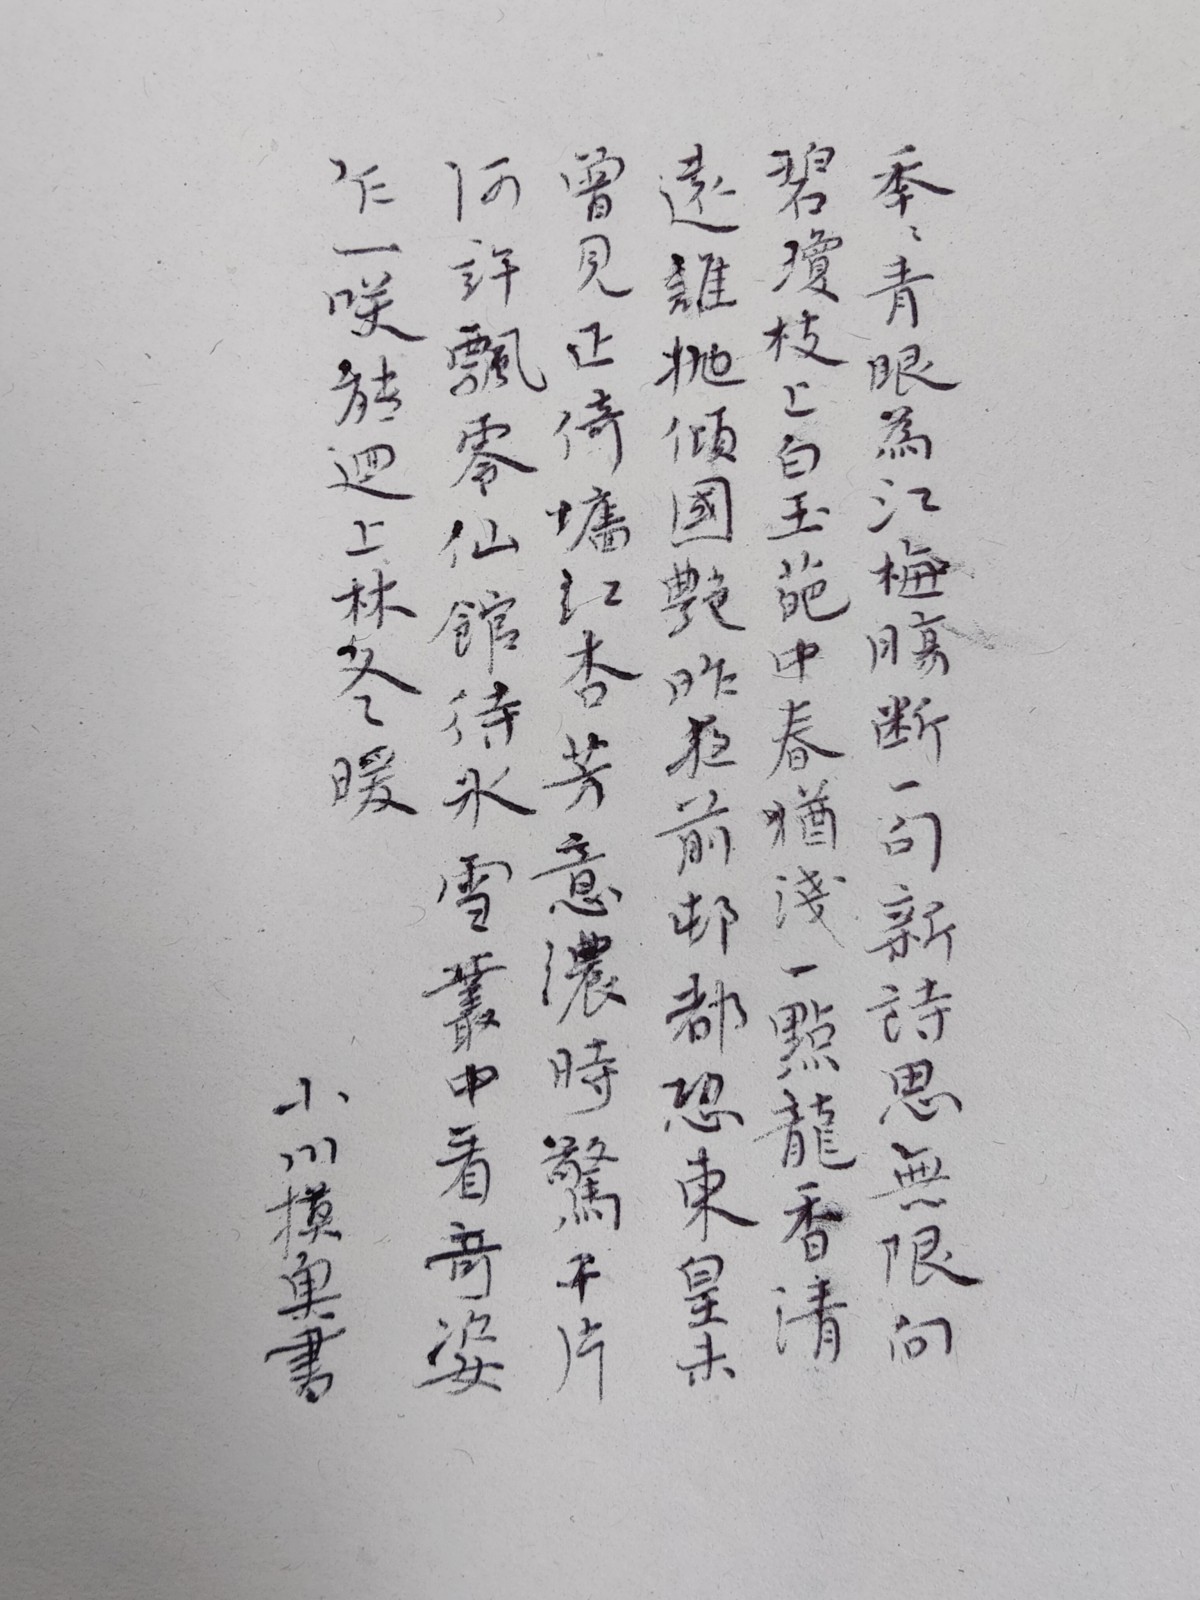 季〻青眼為江梅腸断一句新詩思無限向
碧瓊枝上白玉葩中春猶淺一點龍香清
遠誰抛傾國艷昨夜前邨都恐東皇未
曾見正倚墻紅杏芳意濃時驚千片
何許飄零仙館待氷雪叢中看奇姿
乍一咲能迴上林冬暖
小川模奥書